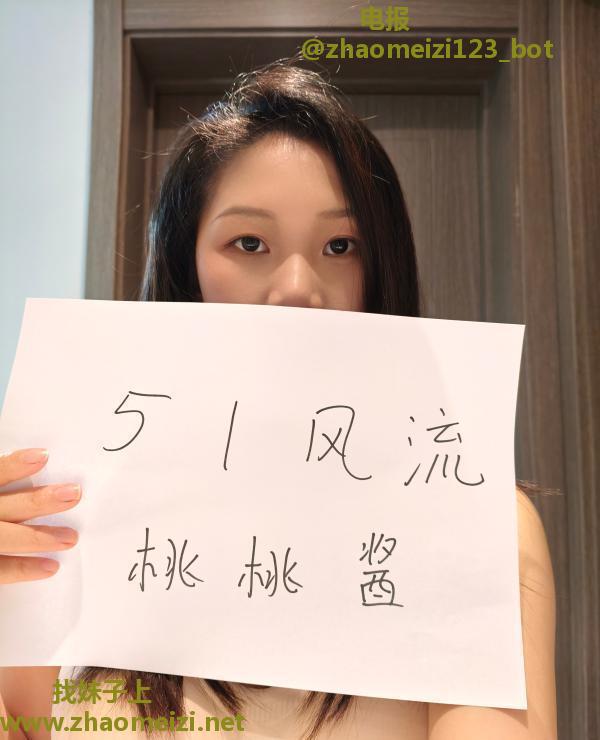 电报
@zhaomeizi123_bot
51风流
桃桃酱
找妹子上
www.zhaomeizi.net